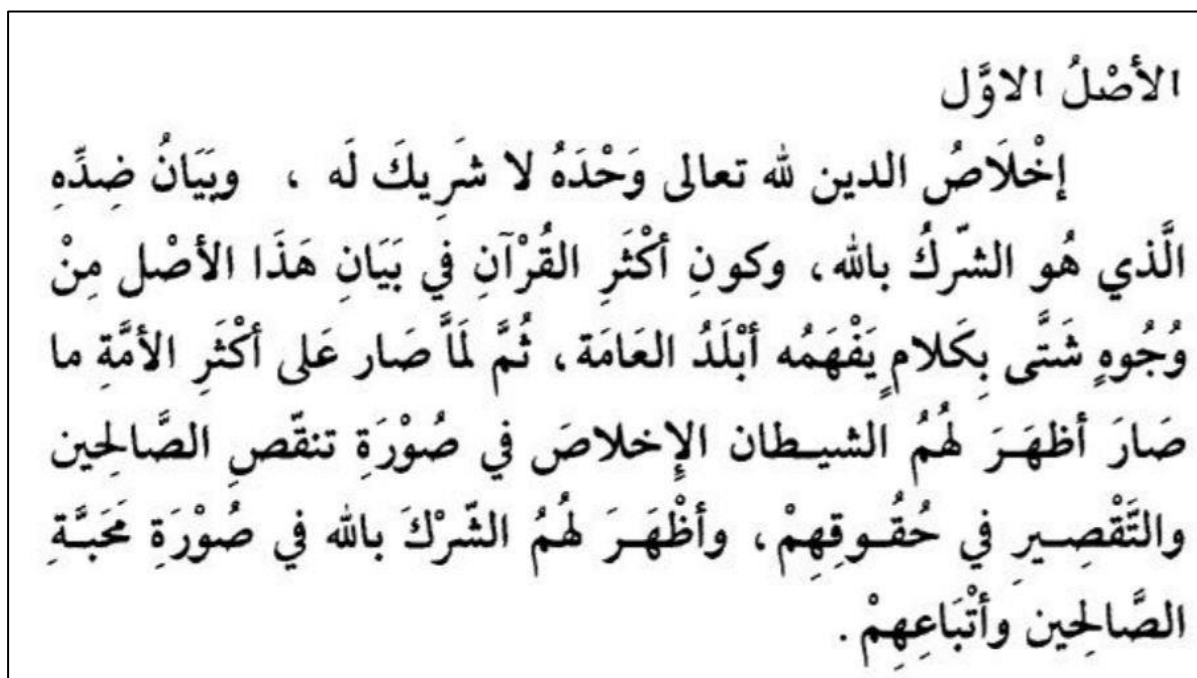 الأصْلُ الاوَّل
إخْلَاصُ الدين لله تعالى وَحْدَهُ لا شَرِيكَ لَه ، وبَيَانُ ضِدِّهِ
الَّذي هُو الشّركُ بالله، وكونِ أكْثَرِ القُرْآنِ في بَيَانِ هَذَا الأصْل مِنْ
وُجُوهٍ شَتَّى بِكَلامٍ يَفْهَمُه أبْلَدُ العَامَة، ثُمَّ لَمَّا صَار عَلى أكْثَرِ الأمَّةِ ما
صَارَ أظهَرَ لهُمُ الشيطان الإخلاصَ في صُوْرَةِ تنقّصِ الصَّالحِين
والتَّقْصِيرِ في حُقُوقِهِمْ، وأظْهَرَ لهُمُ الشّرْكَ بالله في صُوْرَةِ مَحَبَّةِ
الصَّالحِين وأتْبَاعِهِمْ.